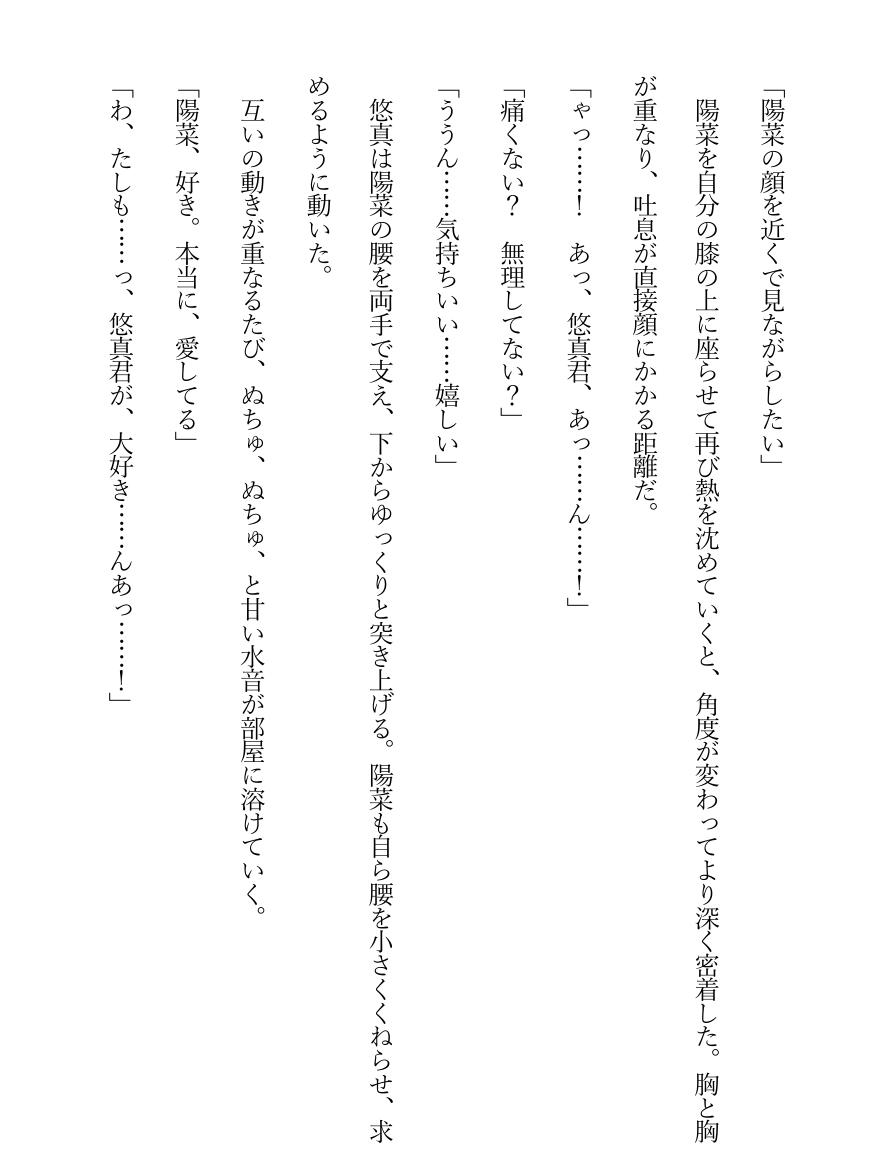 「陽菜の顔を近くで見ながらしたい」
　陽菜を自分の膝の上に座らせて再び熱を沈めていくと、角度が変わってより深く密着した。胸と胸
が重なり、吐息が直接顔にかかる距離だ。
「ゃっ……！　あっ、悠真君、あっ……ん……！」
「痛くない？　無理してない？」
「ううん……気持ちいい……嬉しい」
　悠真は陽菜の腰を両手で支え、下からゆっくりと突き上げる。陽菜も自ら腰を小さくくねらせ、求
めるように動いた。
　互いの動きが重なるたび、ぬちゅ、ぬちゅ、と甘い水音が部屋に溶けていく。
「陽菜、好き。本当に、愛してる」
「わ、たしも……っ、悠真君が、大好き……んあっ……！」